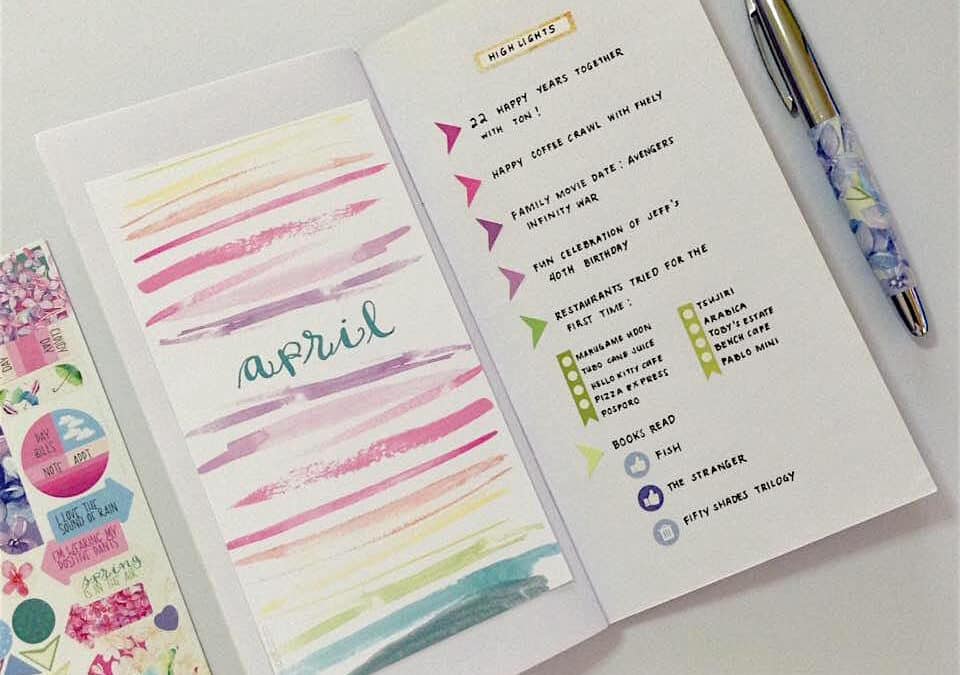 april
HIGHLIGHTS
22 HAPPY YEARS TOGETHER
WITH TON!
HAPPY COFFEE CRAWL WITH FHELY
FAMILY MOVIE DATE: AVENGERS
INFINITY WAR
FUN CELEBRATION OF JEFF'S
40TH BIRTHDAY
RESTAURANTS TRIED FOR THE
FIRST TIME:
MARUGAME UDON
TUBO CANE JUICE
HELLO KITTY CAFE
PIZZA EXPRESS
POSPORO
TSUJIRI
ARABICA
TOBY'S ESTATE
BENCH CAFE
PABLO MINI
BOOKS READ
FISH
THE STRANGER
FIFTY SHADES TRILOGY
CLOUDY
DAY
DAY
DAY
BILLS
NOTE
APPT
I LOVE THE
SOUND OF RAIN
I'M WEARING MY
POSITIVE PANTS
spring
IS IN THE AIR